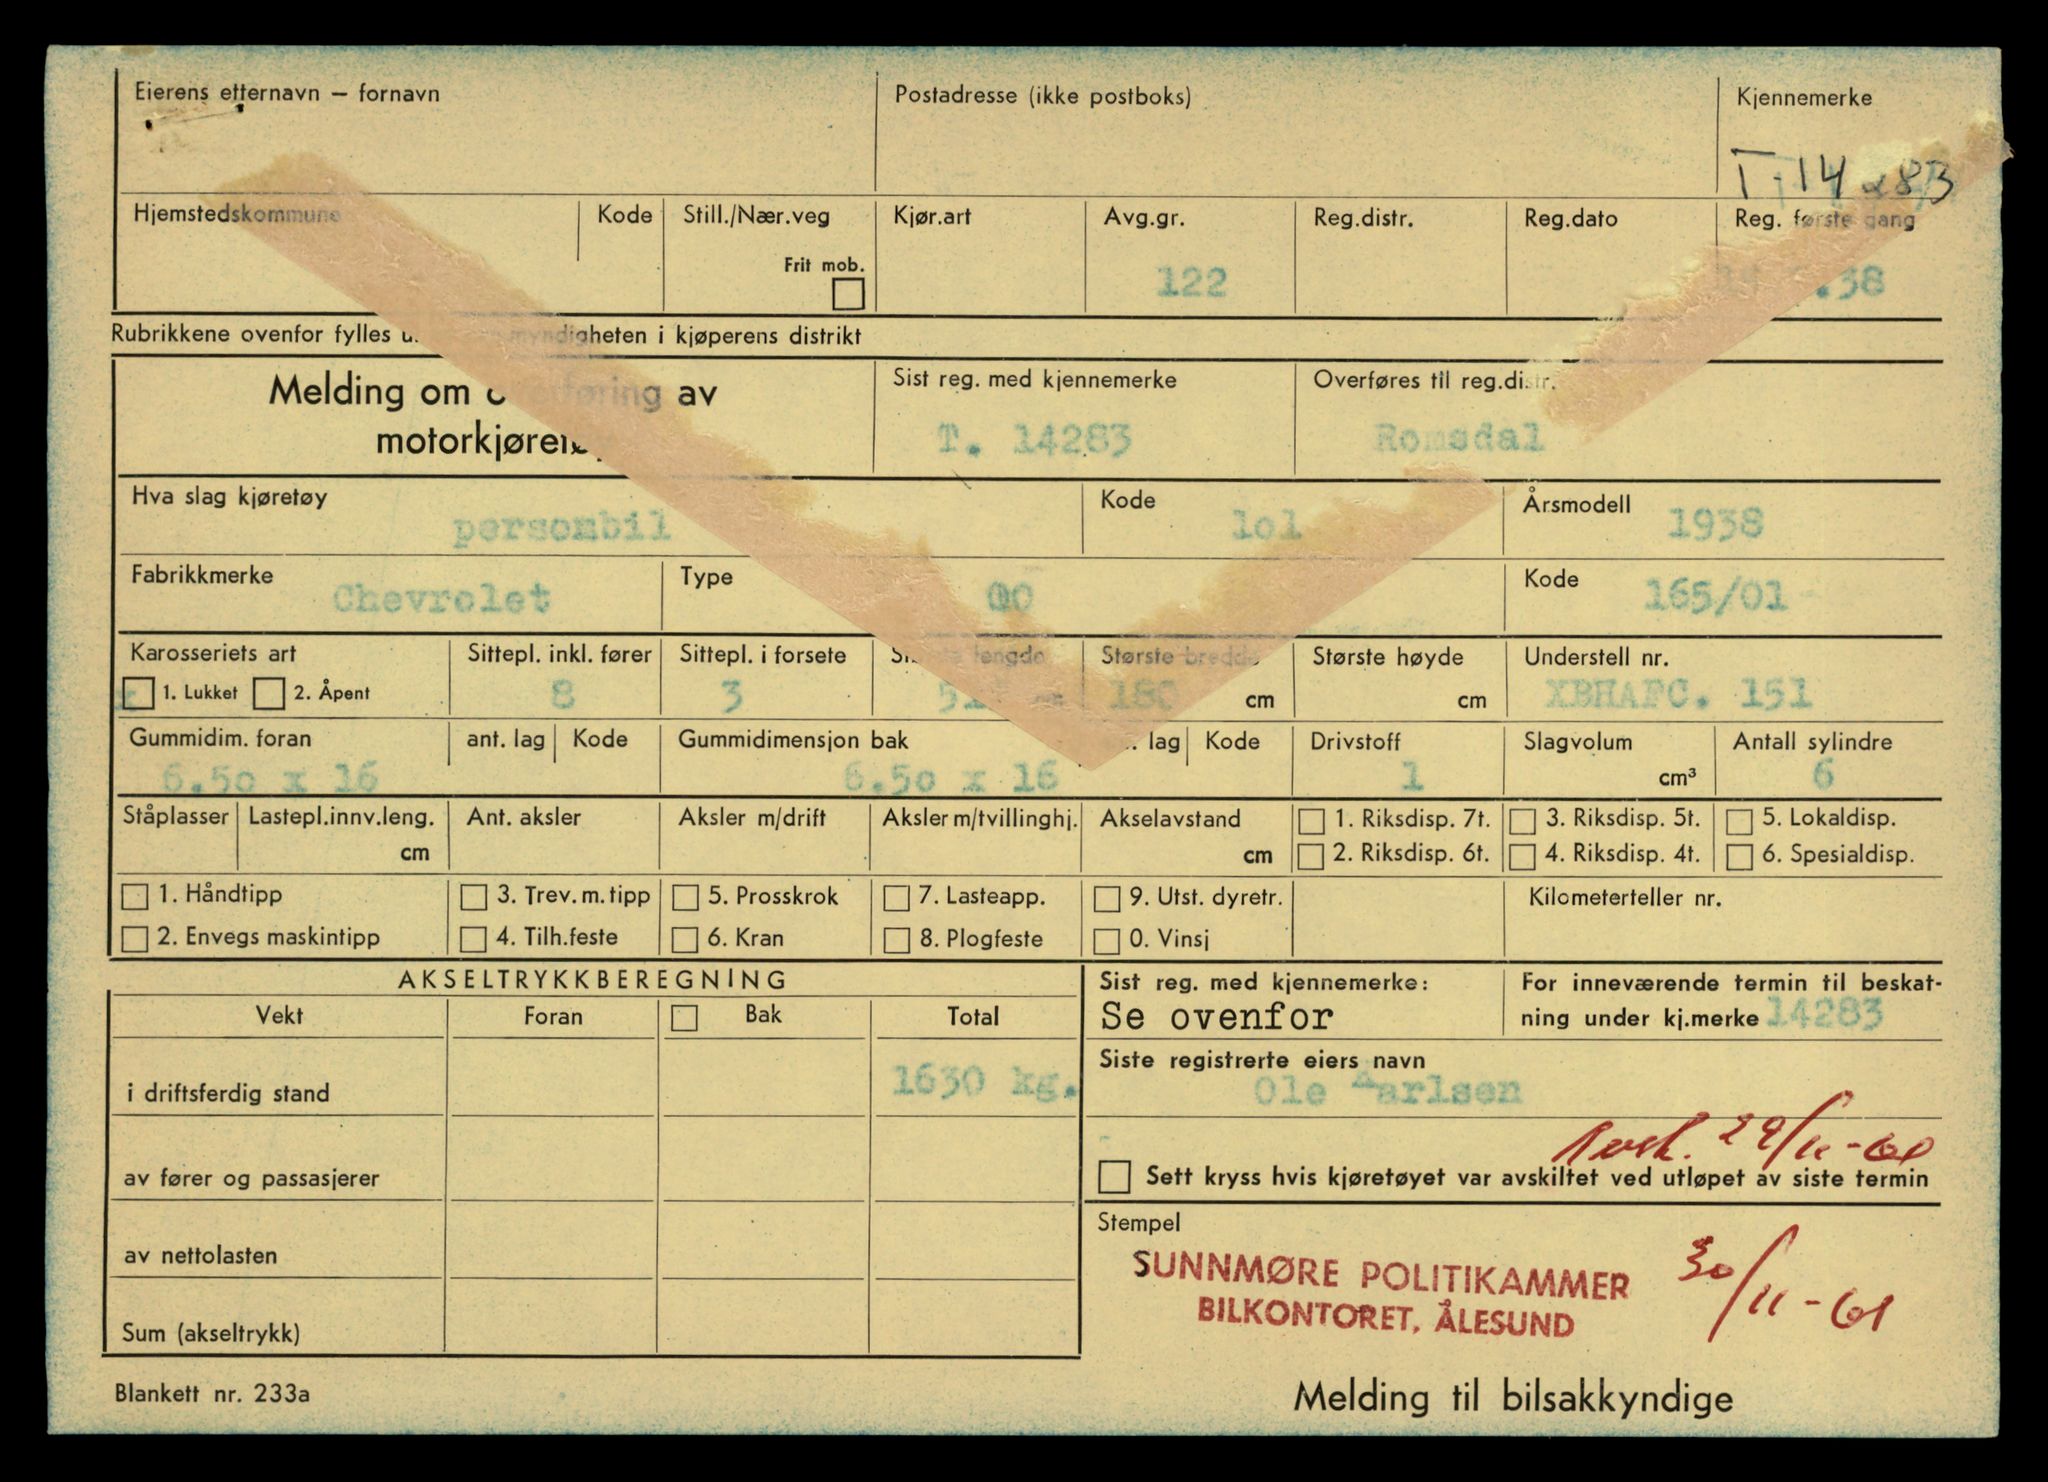 Eierens etternavn – fornavn
Postadresse (ikke postboks)
Kjennemerke
T-14283
Hjemstedskommune
Kode
Still./Nær.veg
Frit mob.
Kjør.art
Avg.gr.
122
Reg.distr.
Reg.dato
Reg. første gang
.38
Rubrikkene ovenfor fylles myndigheten i kjøperens distrikt
Melding om overføring av
motorkjøretøy
Sist reg. med kjennemerke
T. 14283
Overføres til reg.distr.
Romsdal
Hva slag kjøretøy
personbil
Kode
lol
Årsmodell
1938
Fabrikkmerke
Chevrolet
Type
Kode
165/01
Karosseriets art
x 1. Lukket 2. Åpent
Sittepl. inkl. fører
8
Sittepl. i forsete
3
Største lengde
Største bredde
180 cm
Største høyde
cm
Understell nr.
XBHAFC. 151
Gummidim. foran
6.50 x 16
ant. lag
Kode
Gummidimensjon bak
6.50 x 16
lag
Kode
Drivstoff
1
Slagvolum
cm³
Antall sylindre
6
Ståplasser
Lastepl.innv.leng.
cm
Ant. aksler
Aksler m/drift
Aksler m/tvillinghj.
Akselavstand
cm
1. Riksdisp. 7t.
3. Riksdisp. 5t.
5. Lokaldisp.
2. Riksdisp. 6t.
4. Riksdisp. 4t.
6. Spesialdisp.
1. Håndtipp
3. Trev. m. tipp
5. Prosskrok
7. Lasteapp.
9. Utst. dyretr.
Kilometerteller nr.
2. Envegs maskintipp
4. Tilh.feste
6. Kran
8. Plogfeste
0. Vinsj
AKSELTRYKKBEREGNING
Vekt
Foran
Bak
Total
i driftsferdig stand
1630 kg.
av fører og passasjerer
av nettolasten
Sum (akseltrykk)
Sist reg. med kjennemerke:
Se ovenfor
For inneværende termin til beskat-
ning under kj.merke 14283
Siste registrerte eiers navn
Ole Aarlsen
Avsk. 29/11-61
Sett kryss hvis kjøretøyet var avskiltet ved utløpet av siste termin
Stempel
SUNNMØRE POLITIKAMMER
BILKONTORET, ÅLESUND
30/11-61
Blankett nr. 233a
Melding til bilsakkyndige